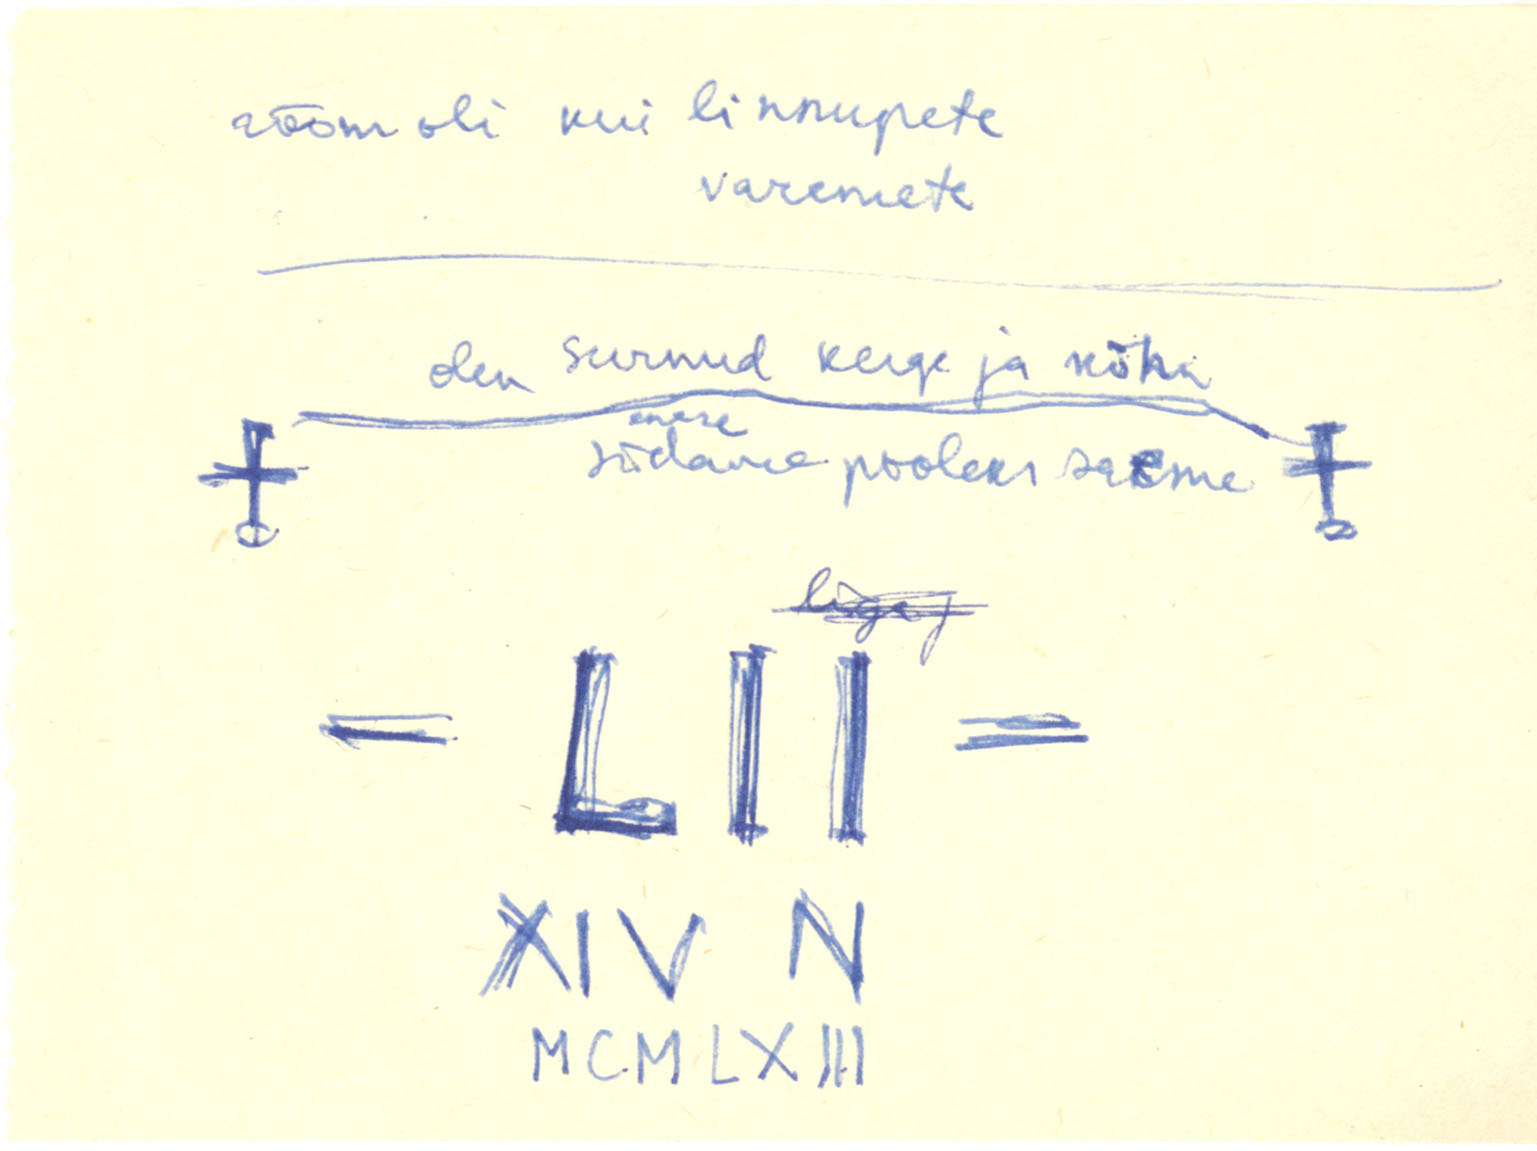 rõõm oli kui linnupete
varemete
olen surnud kerge ja
enese
südame pooleks saeme
LII
XIV N
MCMLXIII